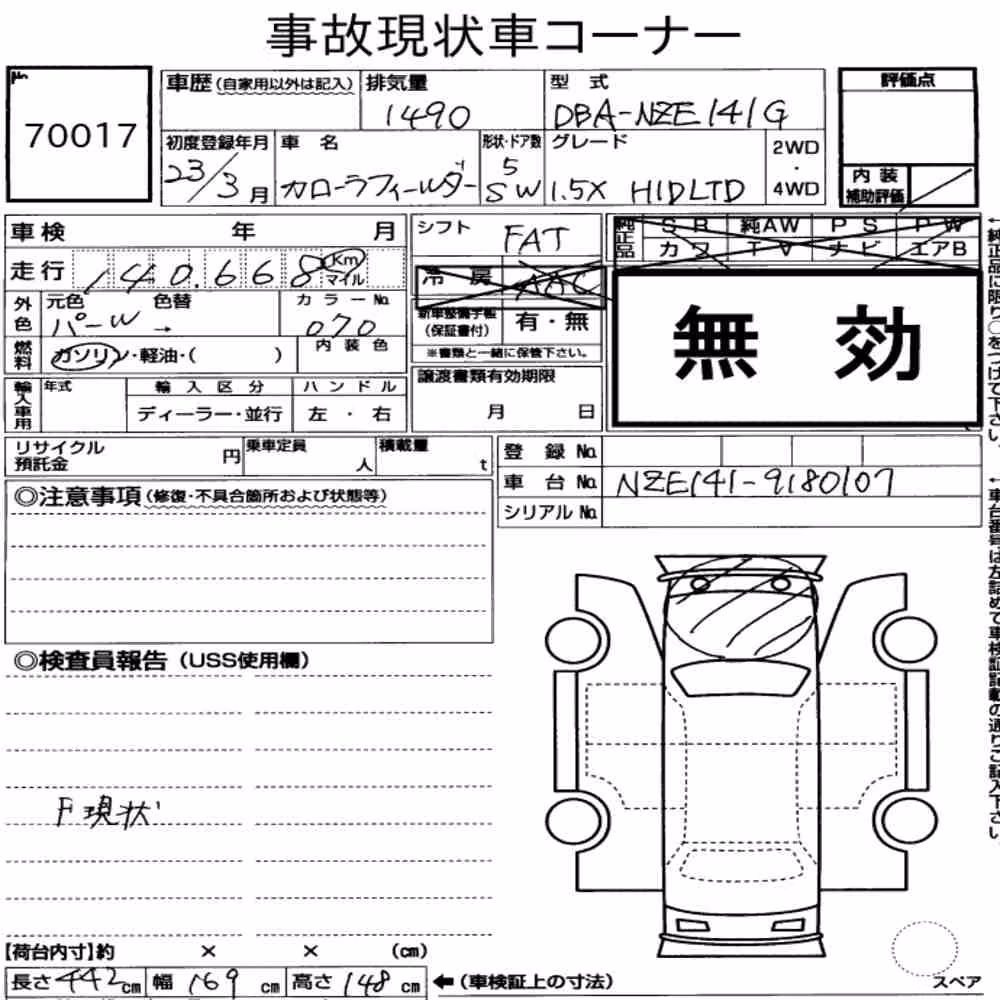 事故現状車コーナー
No.
70017
車歴(自家用以外は記入)
排気量
1490
型式
DBA-NZE141G
評価点
初度登録年月
23/3月
車名
カローラフィールダー
形状・ドア数
5
SW
グレード
1.5X HIDLTD
2WD
・
4WD
内装
補助評価
車検 年 月
シフト
FAT
純正品
SR 純AW PS PW
カワ TV ナビ エアB
走行 140.668 Km
マイル
冷房 AAC
外色
元色 パール
色替 →
カラーNo.
070
新車整備手帳
(保証書付)
有・無
無効
燃料
ガソリン・軽油・( )
内装色
※書類と一緒に保管下さい。
輸入車用
年式
輸入区分
ディーラー・並行
ハンドル
左・右
譲渡書類有効期限
月 日
リサイクル
預託金
円
乗車定員
人
積載量
t
登録No.
車台No. NZE141-9180107
シリアルNo.
◎注意事項(修復・不具合箇所および状態等)
◎検査員報告(USS使用欄)
F現状
【荷台内寸】約 × × (cm)
長さ442cm 幅169cm 高さ148cm
←(車検証上の寸法)
スペア
←純正品に限り○をつけて下さい。
←車台番号は左詰めで車検証記載の通りご記入下さい。